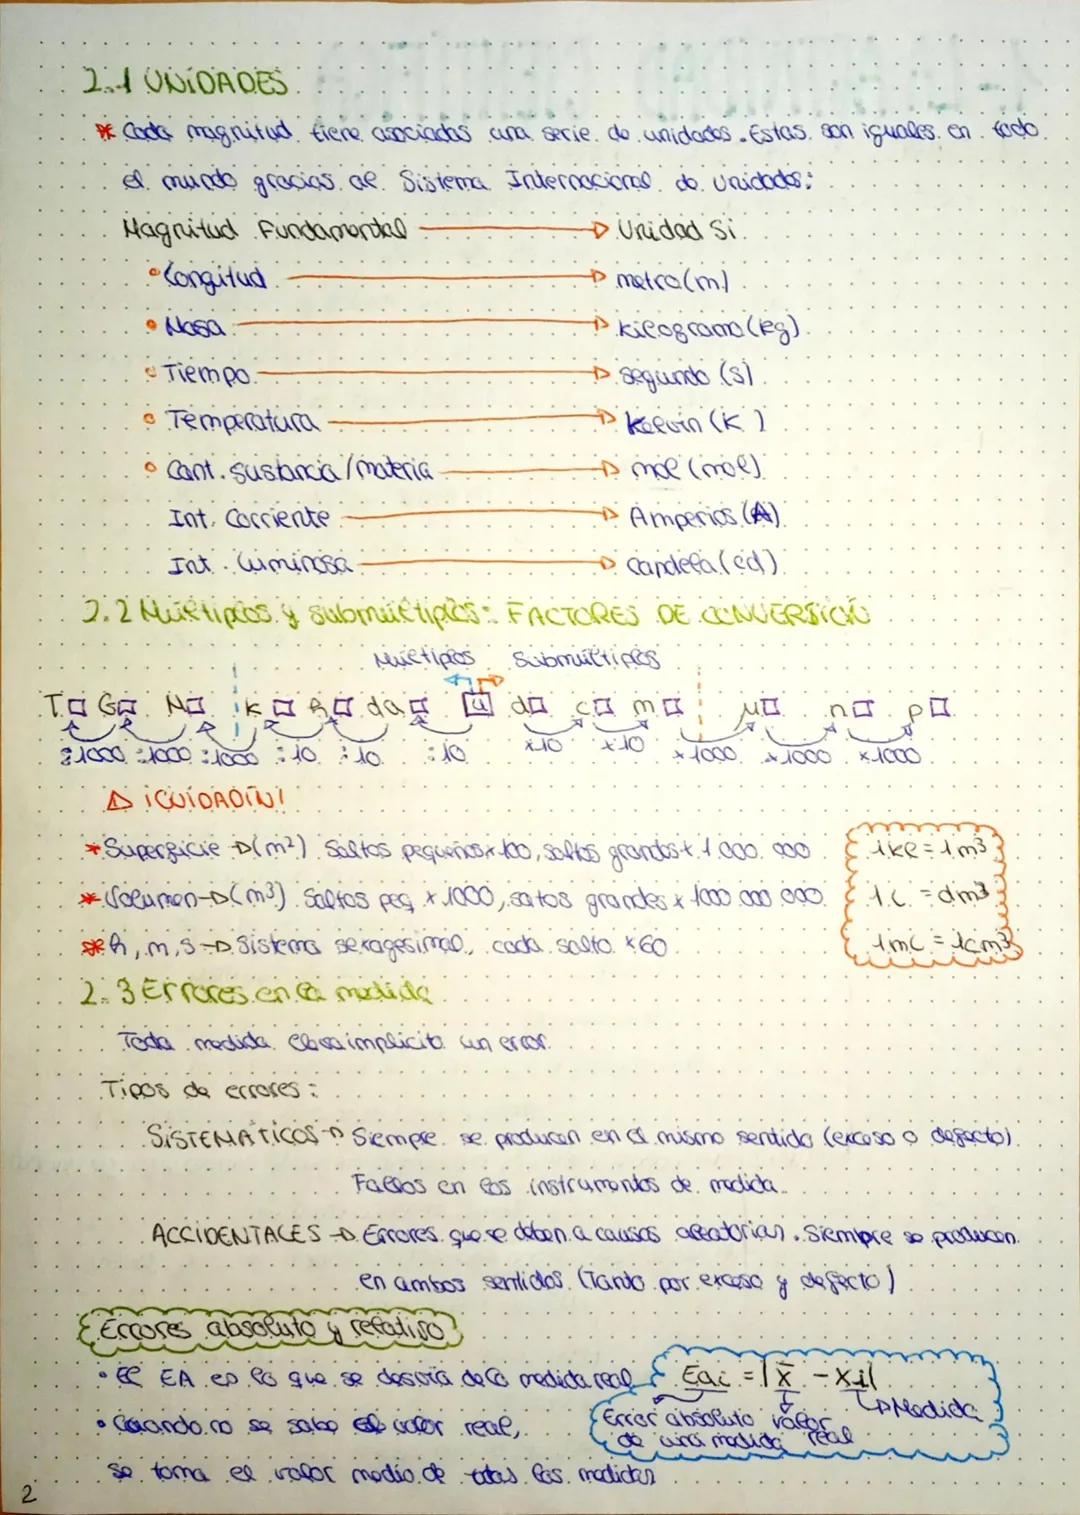 2.1 UNIDADES
* Cada magnitud tiene asociadas una serie de unidades. Estas son iguales en todo
el mundo gracias al Sistema Internacional de Unidades:
Magnitud Fundamental → Unidad Si
• Longitud → metro (m)
• Masa → kilogramo (kg)
• Tiempo → segundo (s)
• Temperatura → kelvin (K)
• Cant. sustancia/materia → mol (mol)
Int. Corriente → Amperios (A)
Int. Luminosa → Candela (cd)
2.2 Múltiplos y submúltiplos: FACTORES DE CONVERSIÓN
Múltiplos Submúltiplos
T□ G□ M□ k□ h□ da□ u d□ c□ m□ μ□ n□ p□
:1000 :1000 :1000 :10 :10 :10 x10 x10 x1000 x1000 x1000
⚠ ¡CUIDADÍN!
* Superficie → (m²) Saltos pequeños x 100, saltos grandes x 1.000.000
1 kl = 1 m³
* Volumen → (m³) Saltos peq x 1000, satos grandes x 1000.000.000
1 L = dm³
* h, m, s → Sistema sexagesimal, cada salto x60
1 mL = 1cm³
2.3 Errores en la medida
Toda medida lleva implícito un error.
Tipos de errores:
SISTEMÁTICOS → Siempre se producen en el mismo sentido (exceso o defecto)
Fallos en los instrumentos de medida.
ACCIDENTALES → Errores que se deben a causas aleatorias. Siempre se producen
en ambos sentidos (Tanto por exceso y defecto)
Errores absoluto y relativo
• El EA es lo que se desvía de la medida real
Eai = |x̄ - xi|
• Cuando no se sabe el valor real,
Error absoluto de una medida
valor real
→ Medida
se toma el valor medio de todas las medidas
2